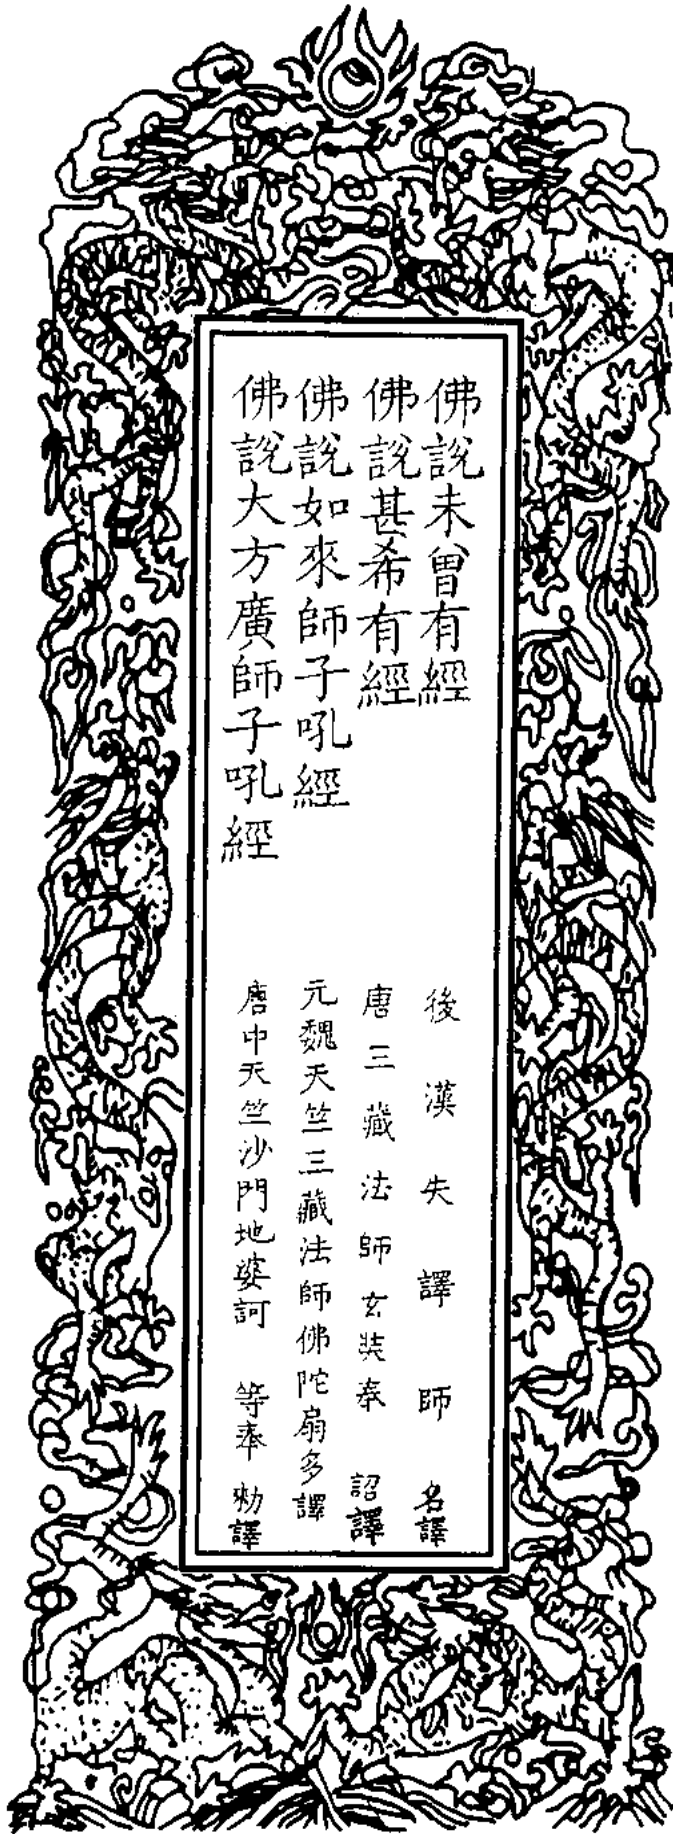 佛說未曾有經　後漢失譯師名譯
佛說甚希有經　唐三藏法師玄奘奉　詔譯
佛說如來師子吼經　元魏天竺三藏法師佛陀扇多譯
佛說大方廣師子吼經　唐中天竺沙門地婆訶　等奉　勑譯